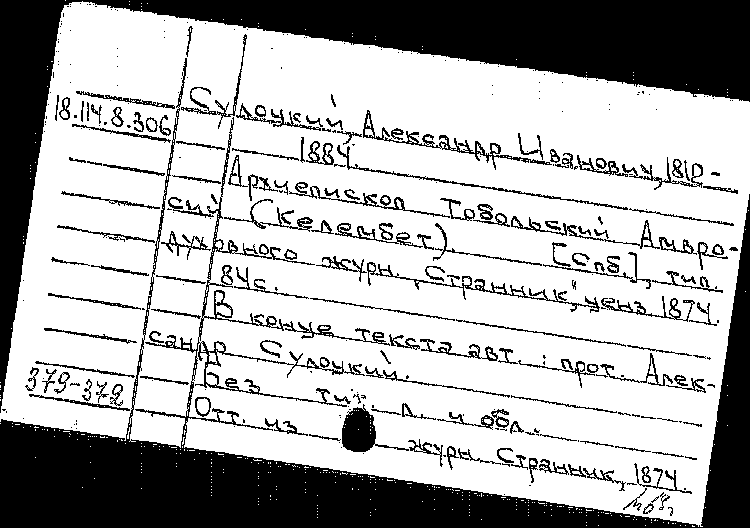 Сулоцкий, Александр Иванович, 1810-
18.114.8.306
1884.
Архиепископ Тобольский Амвро-
сий (Келембет). [Спб.], тип.
духовного журн. "Странник", ценз 1874.
84с.
В конце текста авт.: прот. Алек-
сандр Сулоцкий.
379-372
Без тит. л. и обл.
Отт. из журн. Странник, 1874